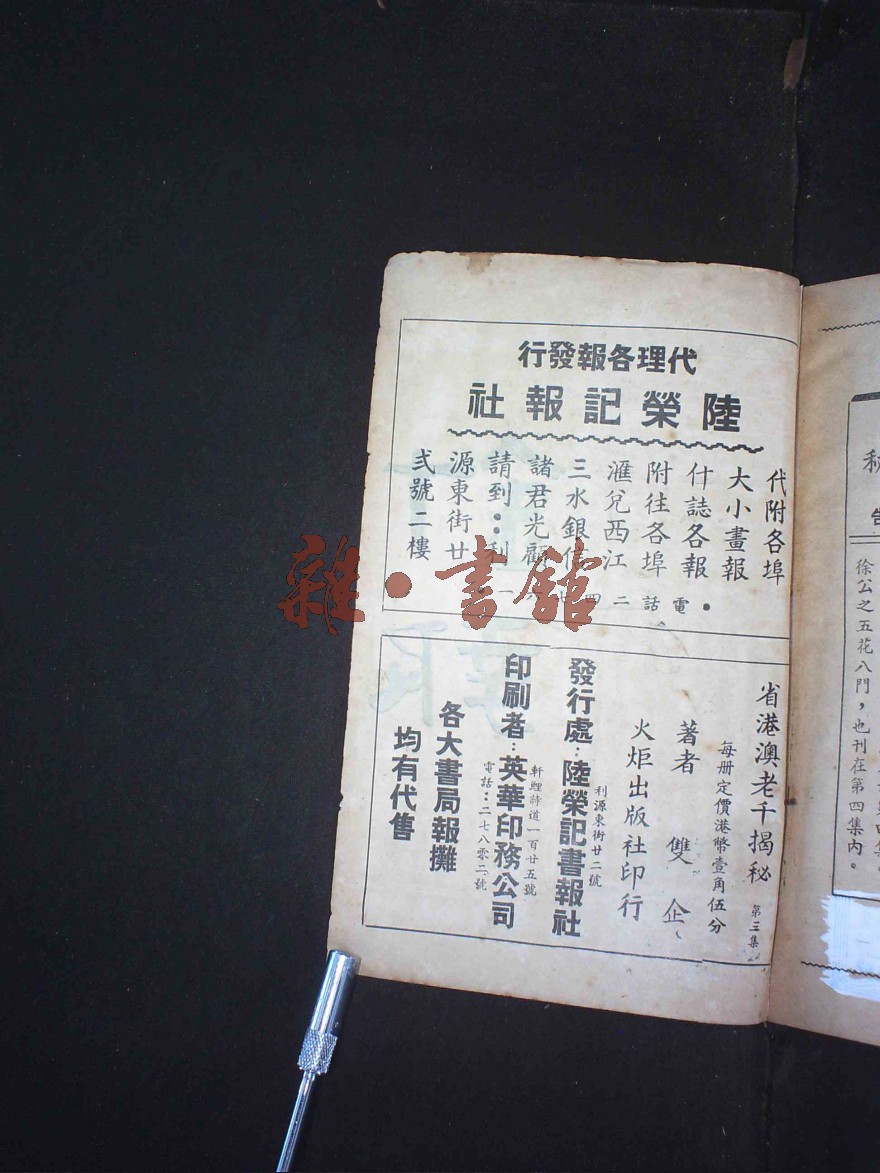 代理各報發行
陸榮記報社
代附各埠
大小畫報
什誌各報
附往各埠
滙兌西江
三水銀信
諸君光顧
請到：利
源東街廿
弍號二樓
省港澳老千揭秘 第三集
每册定價港幣壹角伍分
著者 雙企
火炬出版社印行
利源東街廿二號
發行處：陸榮記書報社
軒鯉詩道一百廿五號
印刷者：英華印務公司
電話：二七八零二號
各大書局報攤
均有代售
徐公之五花八門，也刊在第四集內。
雜·書館